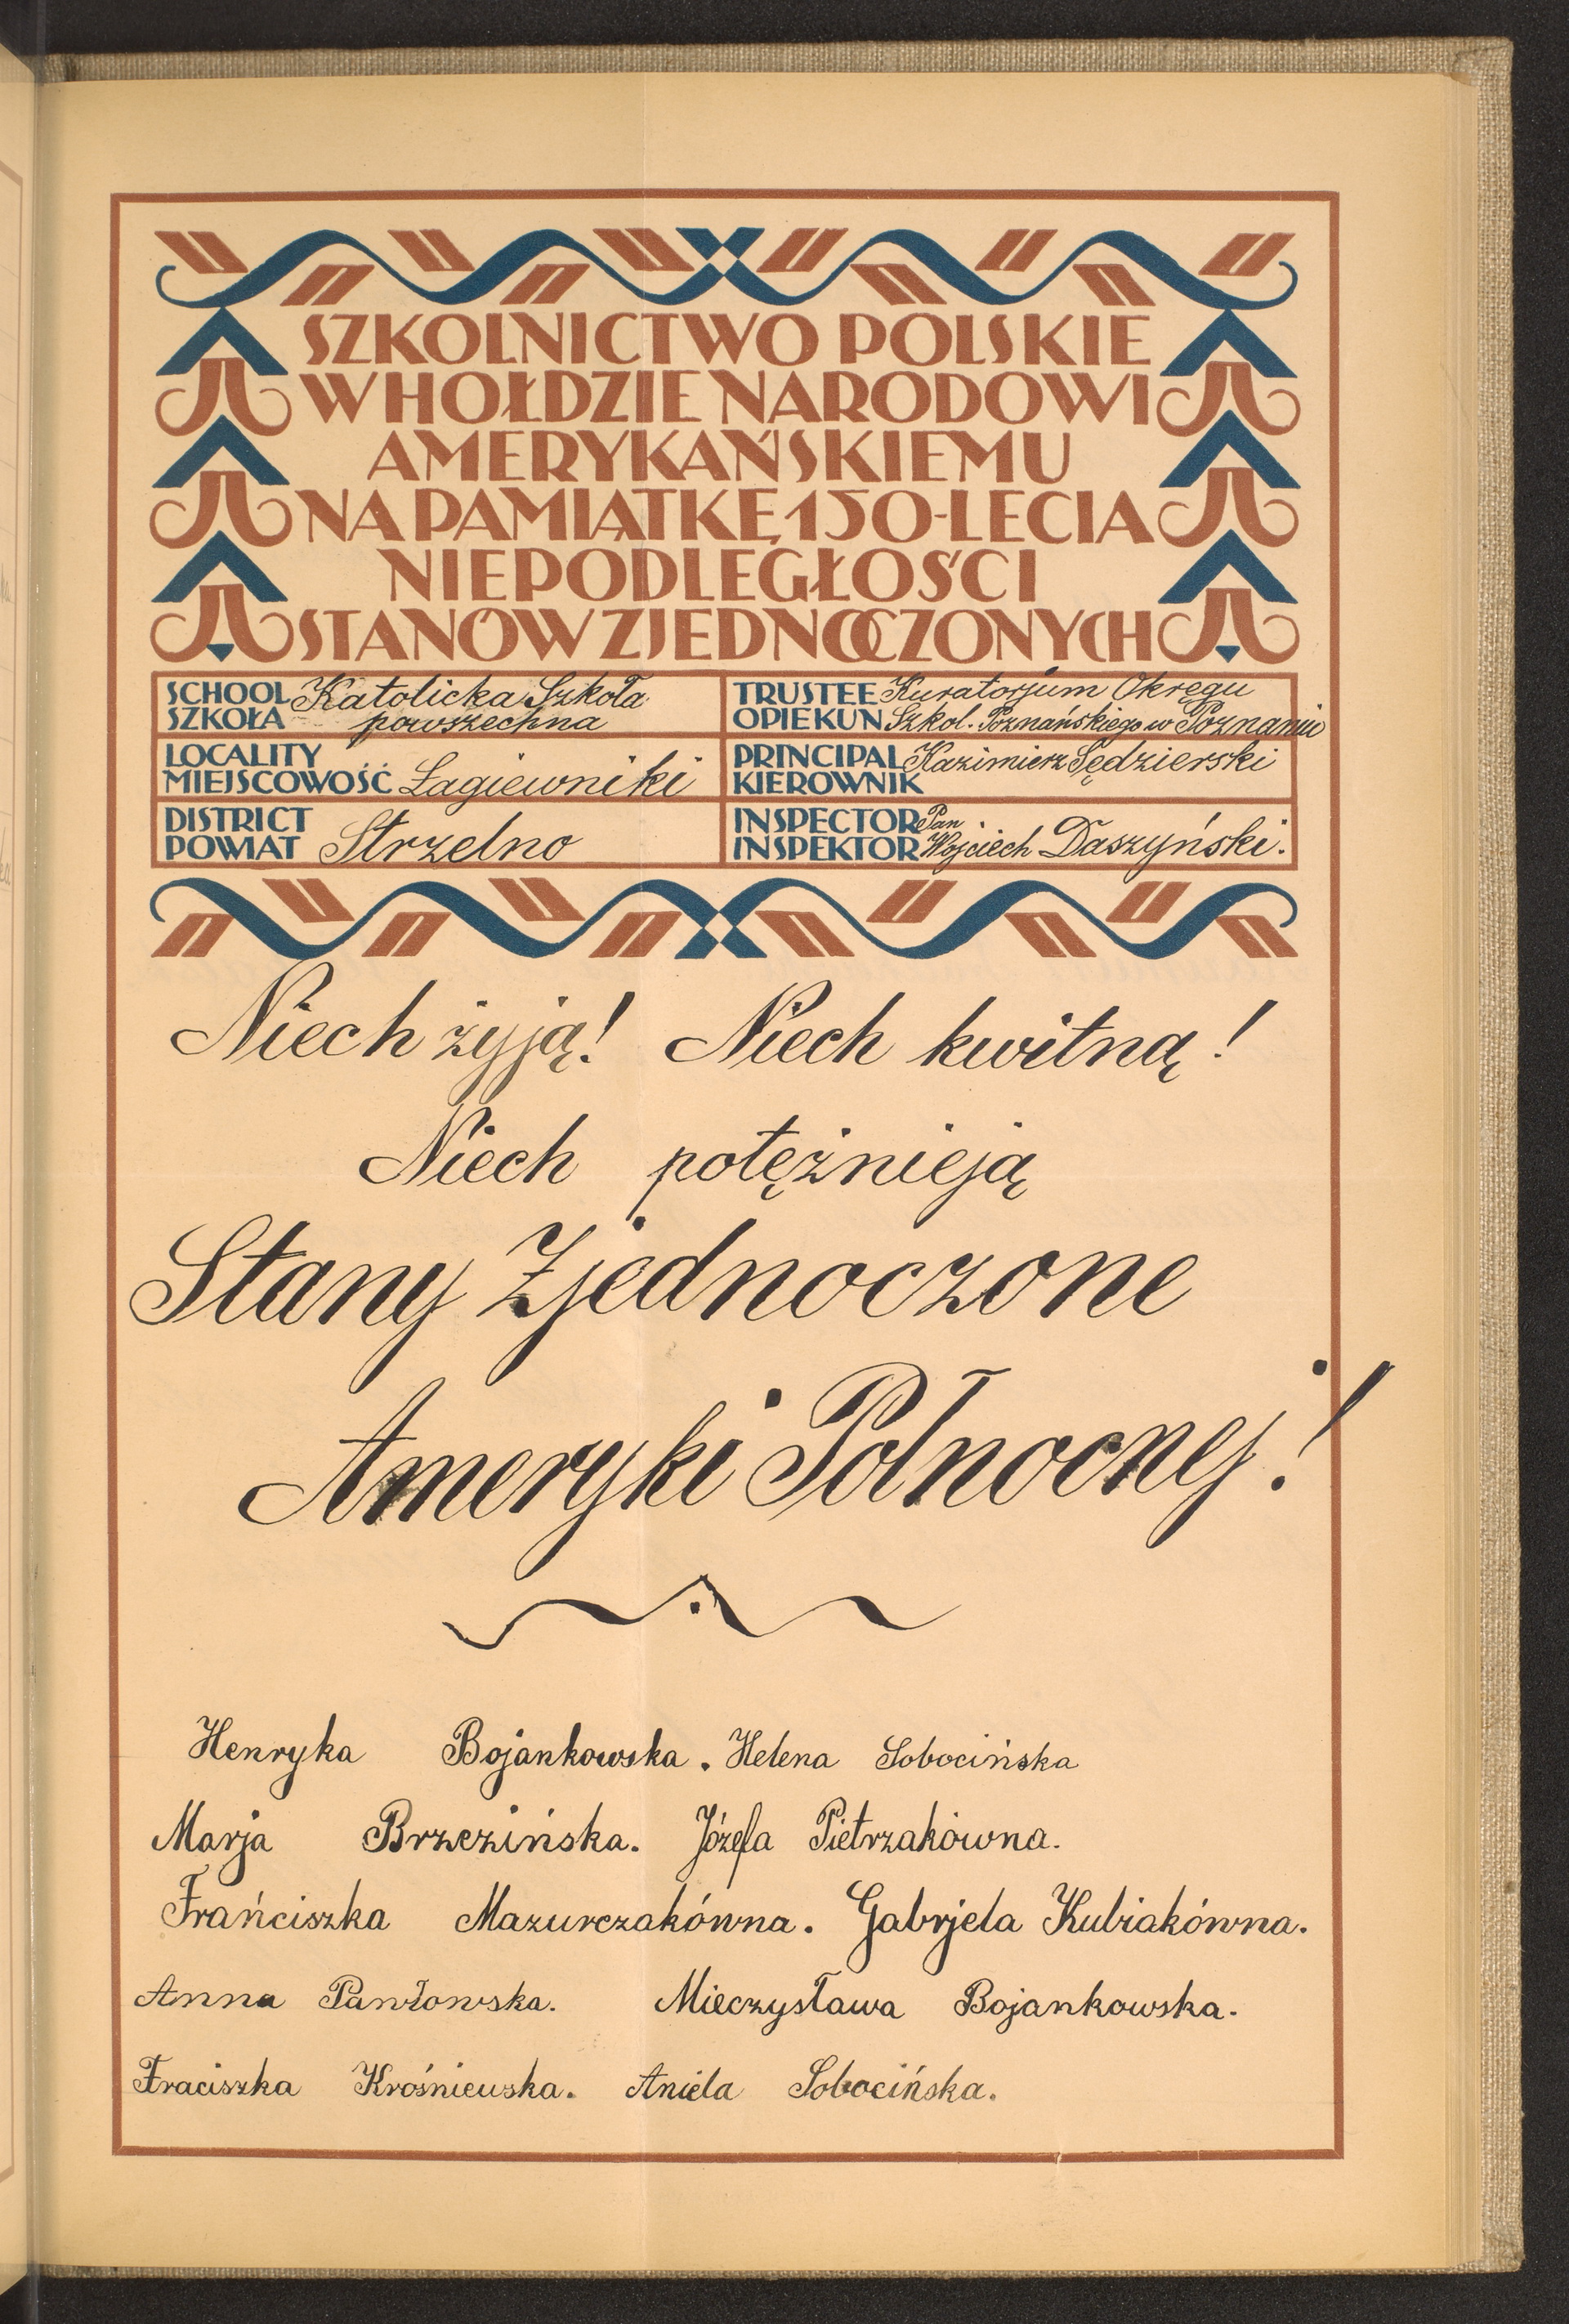 SZKOLNICTWO POLSKIE
W HOŁDZIE NARODOWI
AMERYKAŃSKIEMU
NA PAMIĄTKĘ 150-LECIA
NIEPODLEGŁOŚCI
STANÓW ZJEDNOCZONYCH
SCHOOL Katolicka Szkoła
SZKOŁA powszechna
TRUSTEE Kuratorjum Okręgu
OPIEKUN Szkol. Poznańskiego w Poznaniu
LOCALITY
MIEJSCOWOŚĆ Łagiewniki
PRINCIPAL Kazimierz Sędzierski
KIEROWNIK
DISTRICT
POWIAT Strzelno
INSPECTOR Pan
INSPEKTOR Wojciech Daszyński.
Niech żyją! Niech kwitną!
Niech potężnieją
Stany Zjednoczone
Ameryki Północnej!
Henryka Bojankowska. Helena Sobocińska
Marja Brzezińska. Józefa Pietrzakówna.
Frańciszka Mazurczakówna. Gabrjela Kubiakówna.
Anna Pawłowska. Mieczysława Bojankowska.
Fraciszka Krośniewska. Aniela Sobocińska.